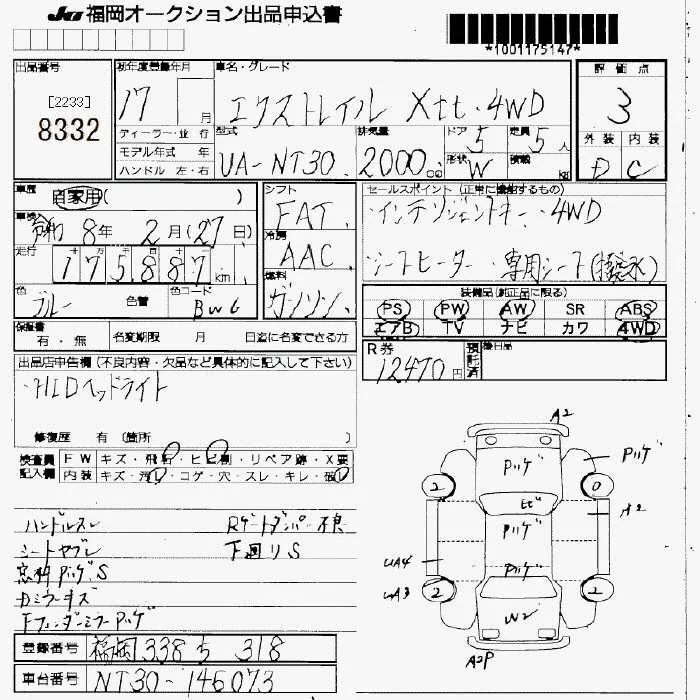 JU 福岡オークション出品申込書
*1001175147*
出品番号
[2233]
8332
初年度登録年月
17 月
ディーラー・並 行
モデル年式 年
ハンドル 左・右
車名・グレード
エクストレイル Xtt・4WD
型式
UA-NT30
排気量
2000 cc
ドア
5
定員
5 人
形状
W
積載
kg
評価点
3
外装 内装
D C
車歴
自家用( )
車検
令和 8年 2月(27日)
走行
十 万 千 百 十
175887 km
色
ブルー
色替
色コード
BW6
シフト
FAT
冷房
AAC
燃料
ガソリン
セールスポイント (正常に機能するもの)
・インテリジェントキー ・4WD
・シートヒーター ・専用シート(撥水)
装備品(純正品に限る)
PS PW AW SR ABS
エアB TV ナビ カワ 4WD
保証書
有・無
名変期限 月 日迄に名変できる方
R券
12470円
預託済
後日品
出品店申告欄 (不良内容・欠品など具体的に記入して下さい)
・HIDヘッドライト
修復歴 有 (箇所 )
検査員記入欄
FW キズ・飛石・ヒビ割・リペア跡・X要
内装 キズ・汚れ・コゲ・穴・スレ・キレ・破れ
ハンドルスレ Rゲートダンパー不良
シートヤブレ 下廻りS
窓枠PハゲS
Dミラーキズ
FフェンダーミラーPハゲ
A2
Pハゲ
Pハゲ
2 0
ヒビ
A2
Pハゲ
UA4
Pハゲ
UA3
2 2
W2
A2P
登録番号
福岡 338 ら 318
車台番号
NT30-146073